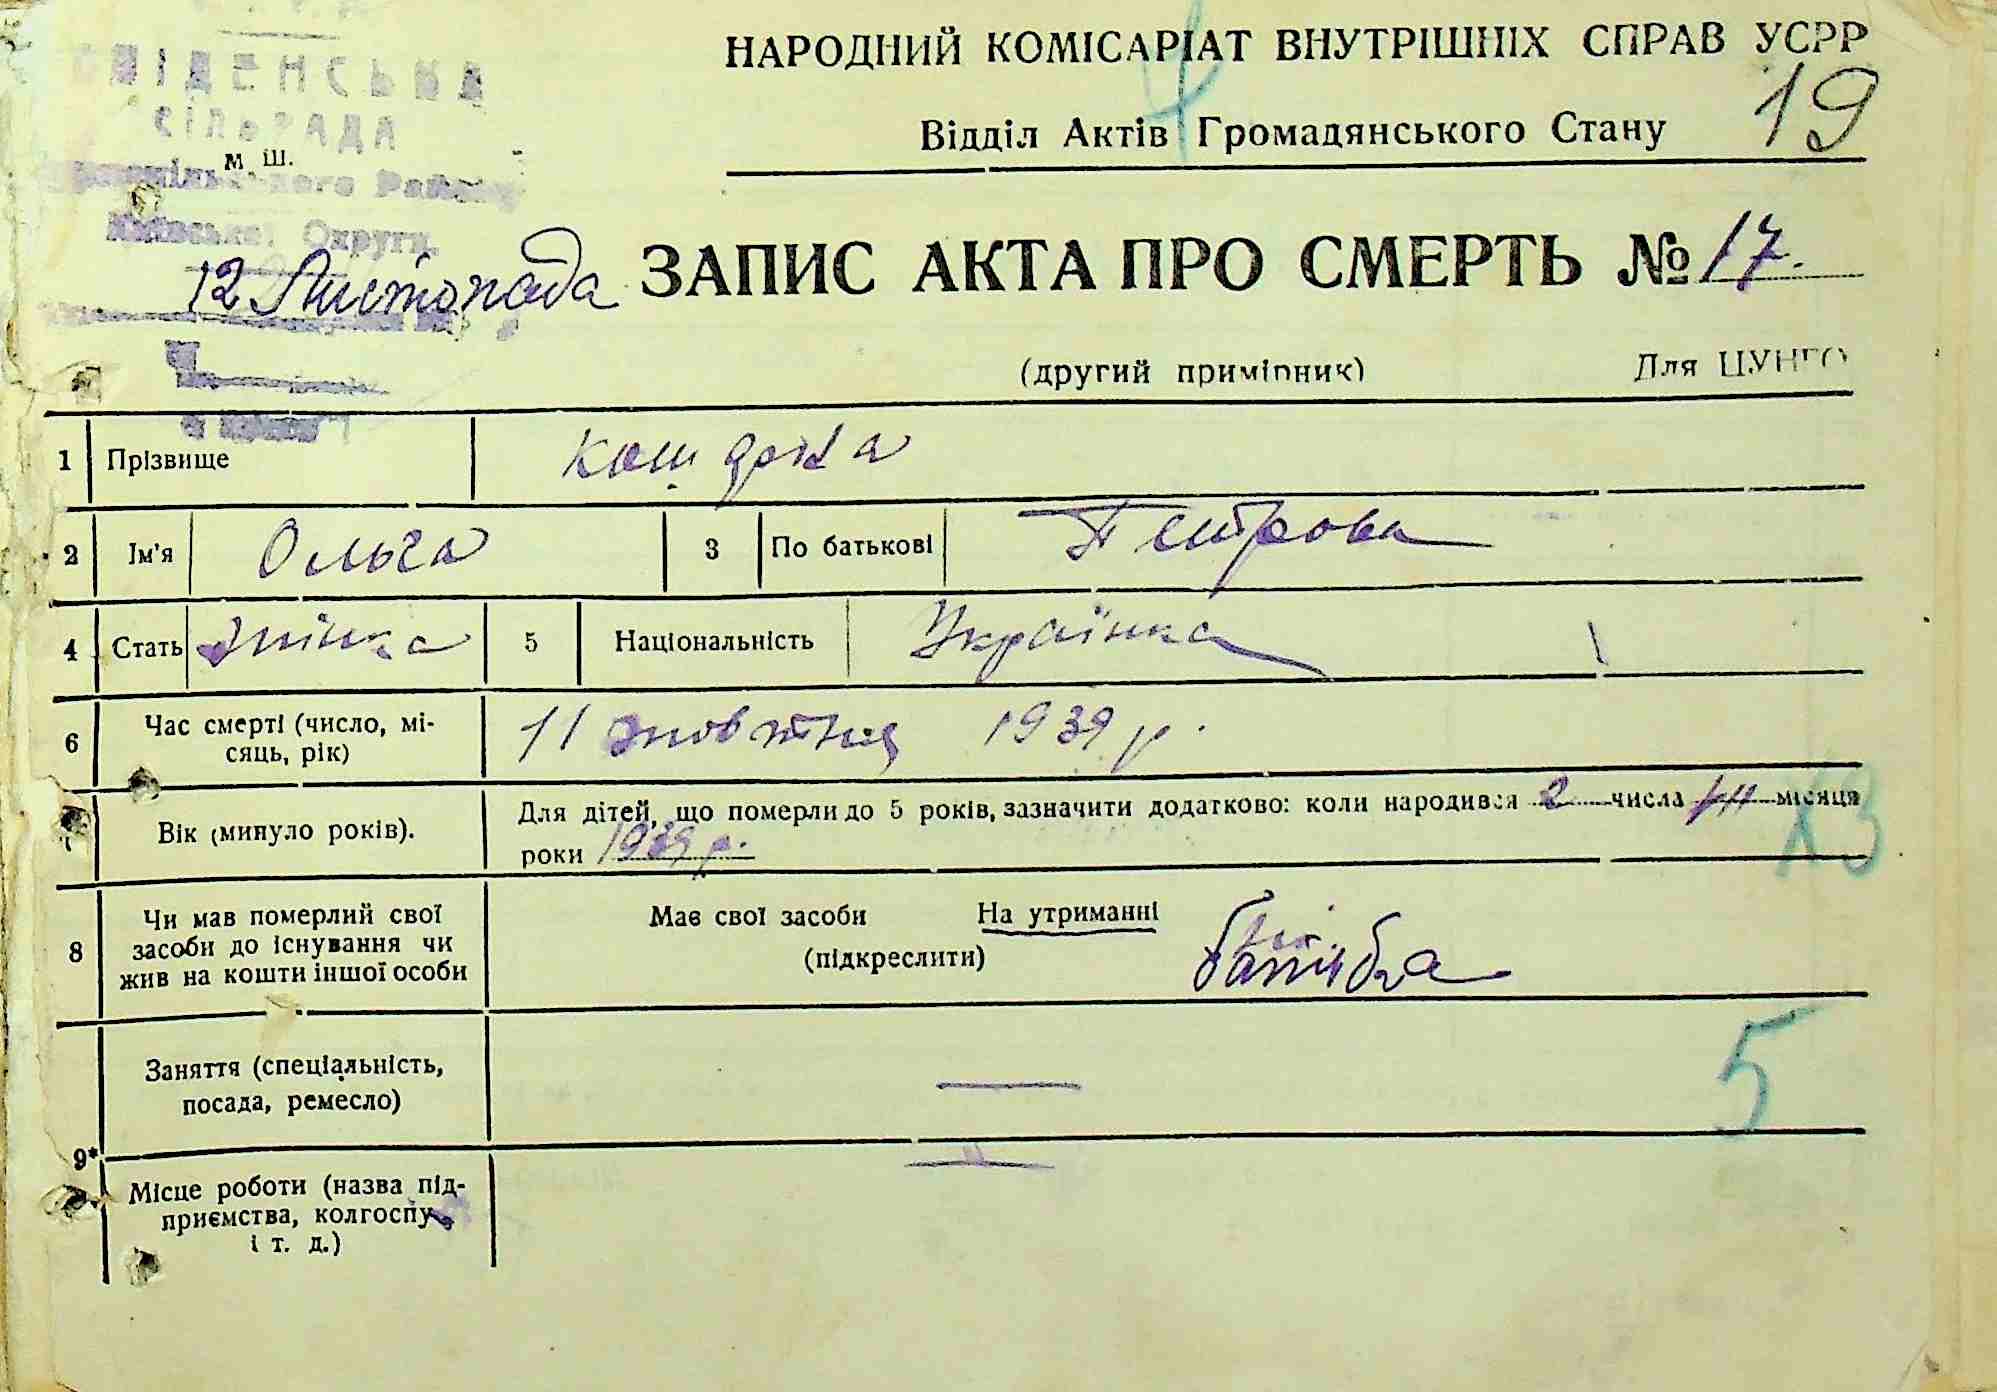 СІЛЬРАДА
М. Ш.
Району
Округи
НАРОДНИЙ КОМІСАРІАТ ВНУТРІШНІХ СПРАВ УСРР
Відділ Актів Громадянського Стану
19
12 Листопада
ЗАПИС АКТА ПРО СМЕРТЬ № 17.
(другий примірник)
Для ЦУНГО
1 Прізвище
2 Ім'я Ольга 3 По батькові Петрова
4 Стать жінка 5 Національність Українка
6 Час смерті (число, мі-
сяць, рік) 11 жовтня 1939 р.
7 Вік (минуло років). Для дітей, що померли до 5 років, зазначити додатково: коли народився 2 числа місяця
роки 1939 р.
8 Чи мав померлий свої
засоби до існування чи
жив на кошти іншої особи
Має свої засоби На утриманні
(підкреслити)
5
9* Заняття (спеціальність,
посада, ремесло) —
Місце роботи (назва під-
приємства, колгоспу,
і т. д.) — " —